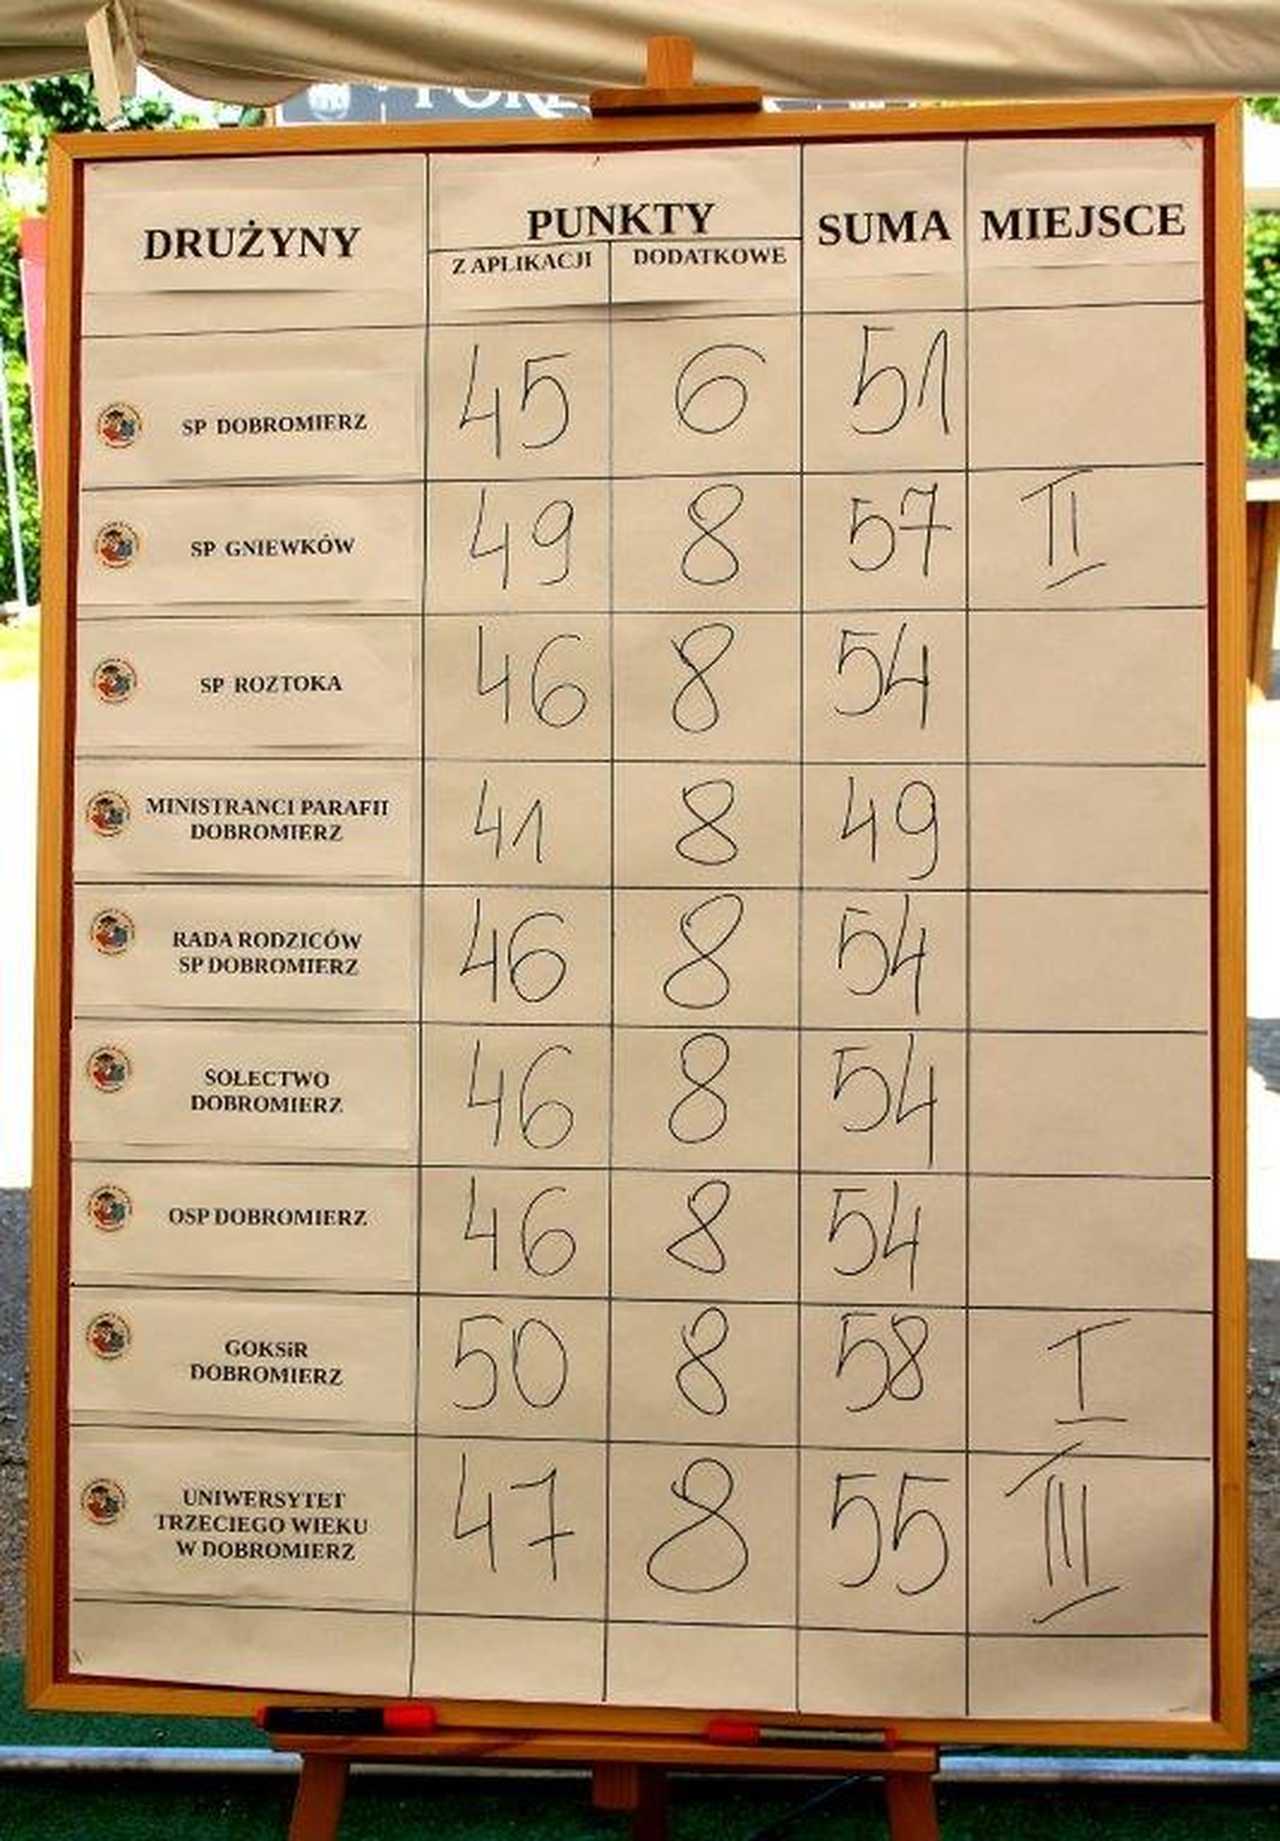 DRUŻYNY
PUNKTY
Z APLIKACJI
DODATKOWE
SUMA
MIEJSCE
SP DOBROMIERZ 45 6 51
SP GNIEWKÓW 49 8 57 II
SP ROZTOKA 46 8 54
MINISTRANCI PARAFII
DOBROMIERZ 41 8 49
RADA RODZICÓW
SP DOBROMIERZ 46 8 54
SOŁECTWO
DOBROMIERZ 46 8 54
OSP DOBROMIERZ 46 8 54
GOKSiR
DOBROMIERZ 50 8 58 I
UNIWERSYTET
TRZECIEGO WIEKU
W DOBROMIERZ 47 8 55 III